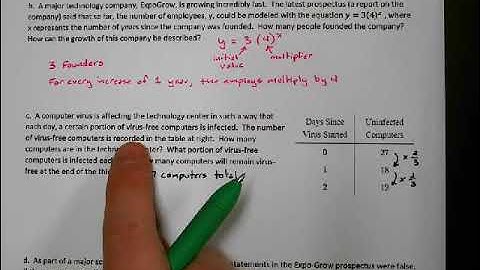 b. A major technology company, ExpoGrow, is growing incredibly fast. The latest prospectus (a report on the
company) said that so far, the number of employees, y, could be modeled with the equation y = 3(4)ˣ, where
x represents the number of years since the company was founded. How many people founded the company?
How can the growth of this company be described?
y = 3 (4)ˣ
initial value
multiplier
3 Founders
For every increase of 1 year, the employs multiply by 4
c. A computer virus is affecting the technology center in such a way that
each day, a certain portion of virus-free computers is infected. The number
of virus-free computers is recorded in the table at right. How many
computers are in the technology center? What portion of virus-free
computers is infected each How many computers will remain virus-
free at the end of the third
computers total
Days Since Virus Started
Uninfected Computers
0 27
x 2/3
1 18
x 2/3
2 12
d. As part of a major statements in the Expo-Grow prospectus were false,